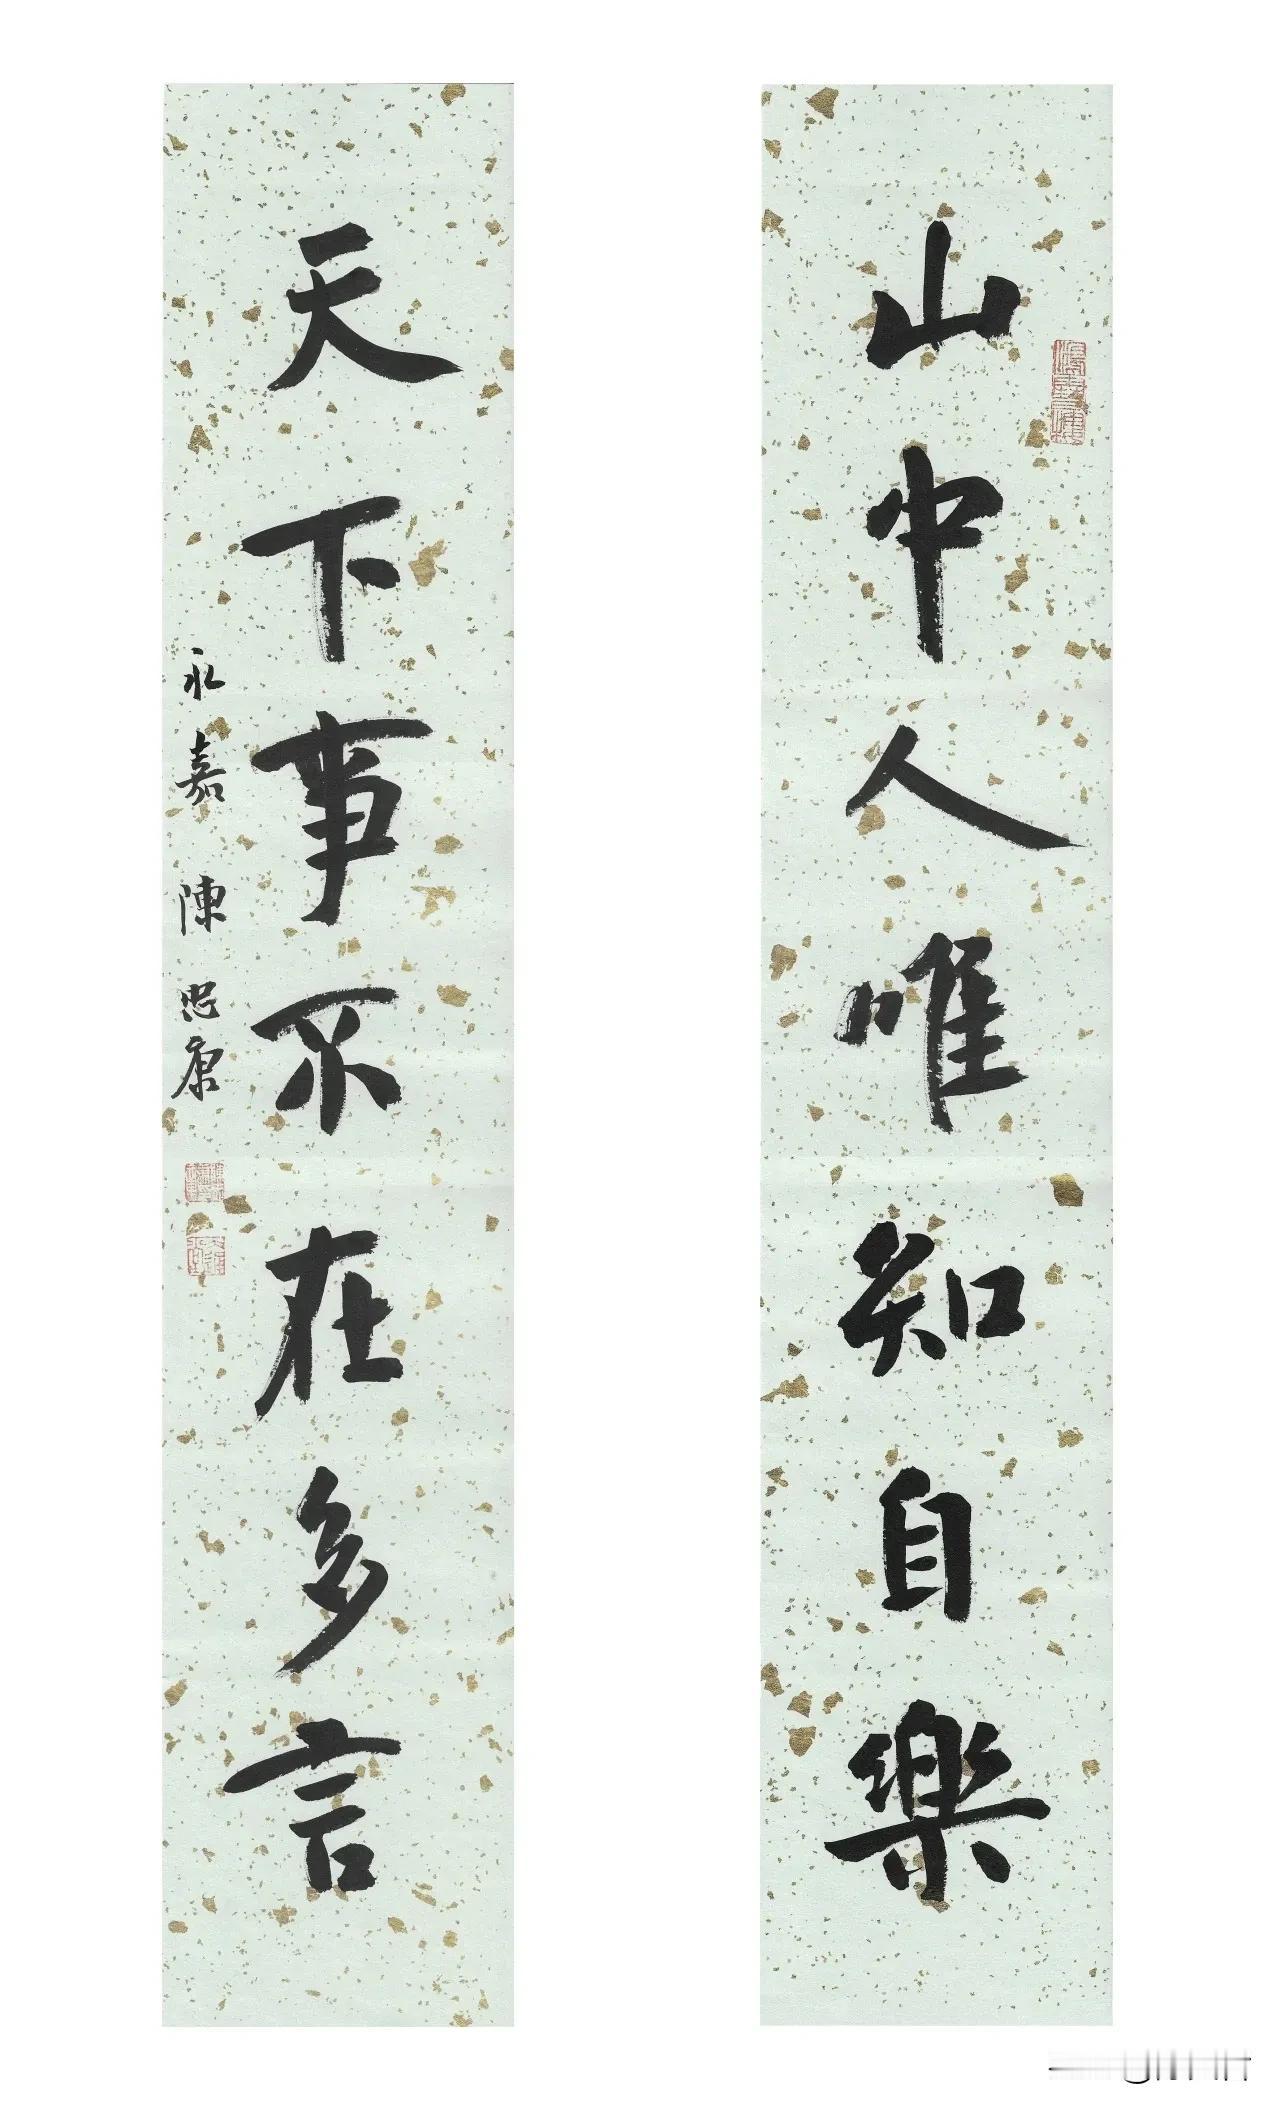 山中人唯知自樂
天下事不在多言
永嘉陳忠康